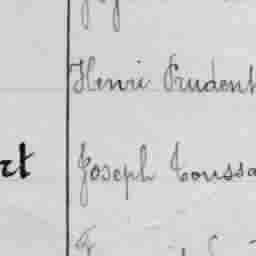 Henri Prudent
rt Joseph Toussa